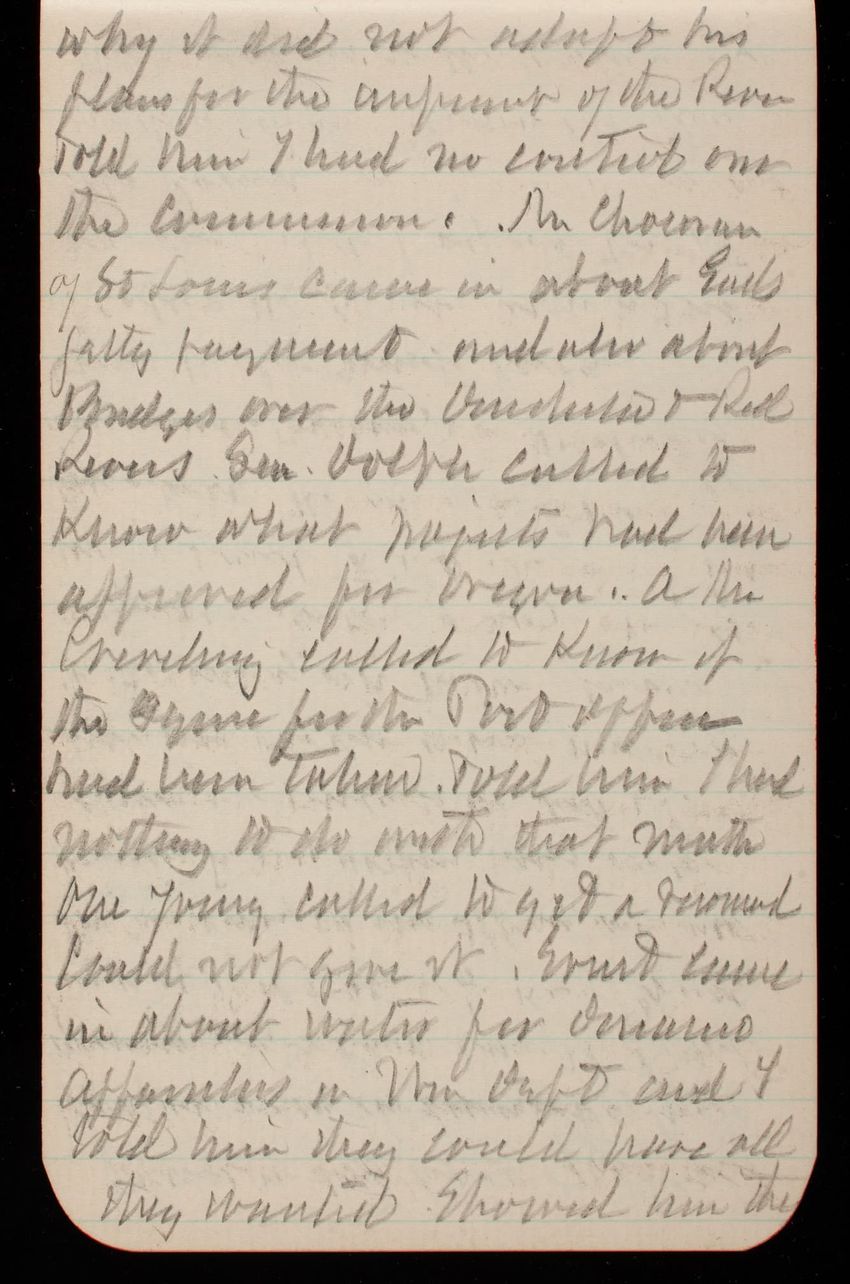 why it did not adopt his
plans for the improvmt of the River
Told him I had no control over
the Commission. . Mr
of St Louis came in about Eads
Jetty payment and also about
Bridges over the & Red
Rivers. Sen. Dolph called to
Know what projects had been
approved for Oregon.. A Mr
called to Know if
the for the Post office
had been taken. Told him I had
nothing to do with that matter
One Young called to get a
Could not give it. came
in about water for
in War Dept and I
told him they could have all
they wanted. Showed him the